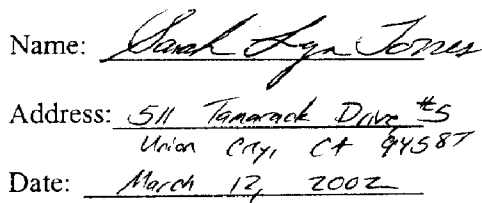 Name: Sarah Lyn Jones
Address: 511 Tamarack Drive #5
Union City, CA 94587
Date: March 12, 2002